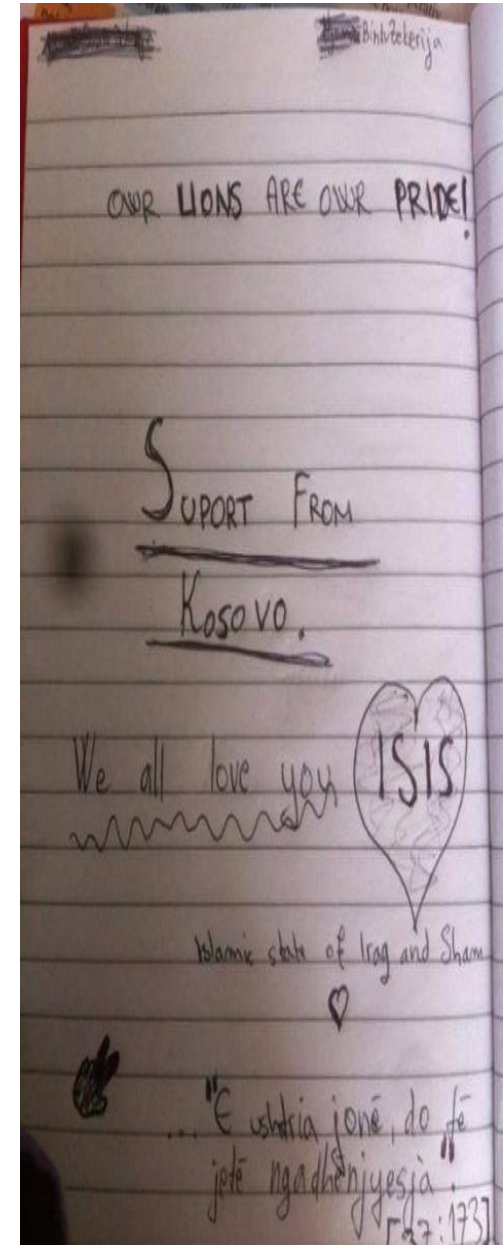 Bintu Zekerija
OUR LIONS ARE OUR PRIDE!
SUPORT FROM
KOSOVO.
We all love you ISIS
Islamic state of Iraq and Sham
... "E ushtria jonë, do të
jetë ngadhënjyesja".
[37:173]